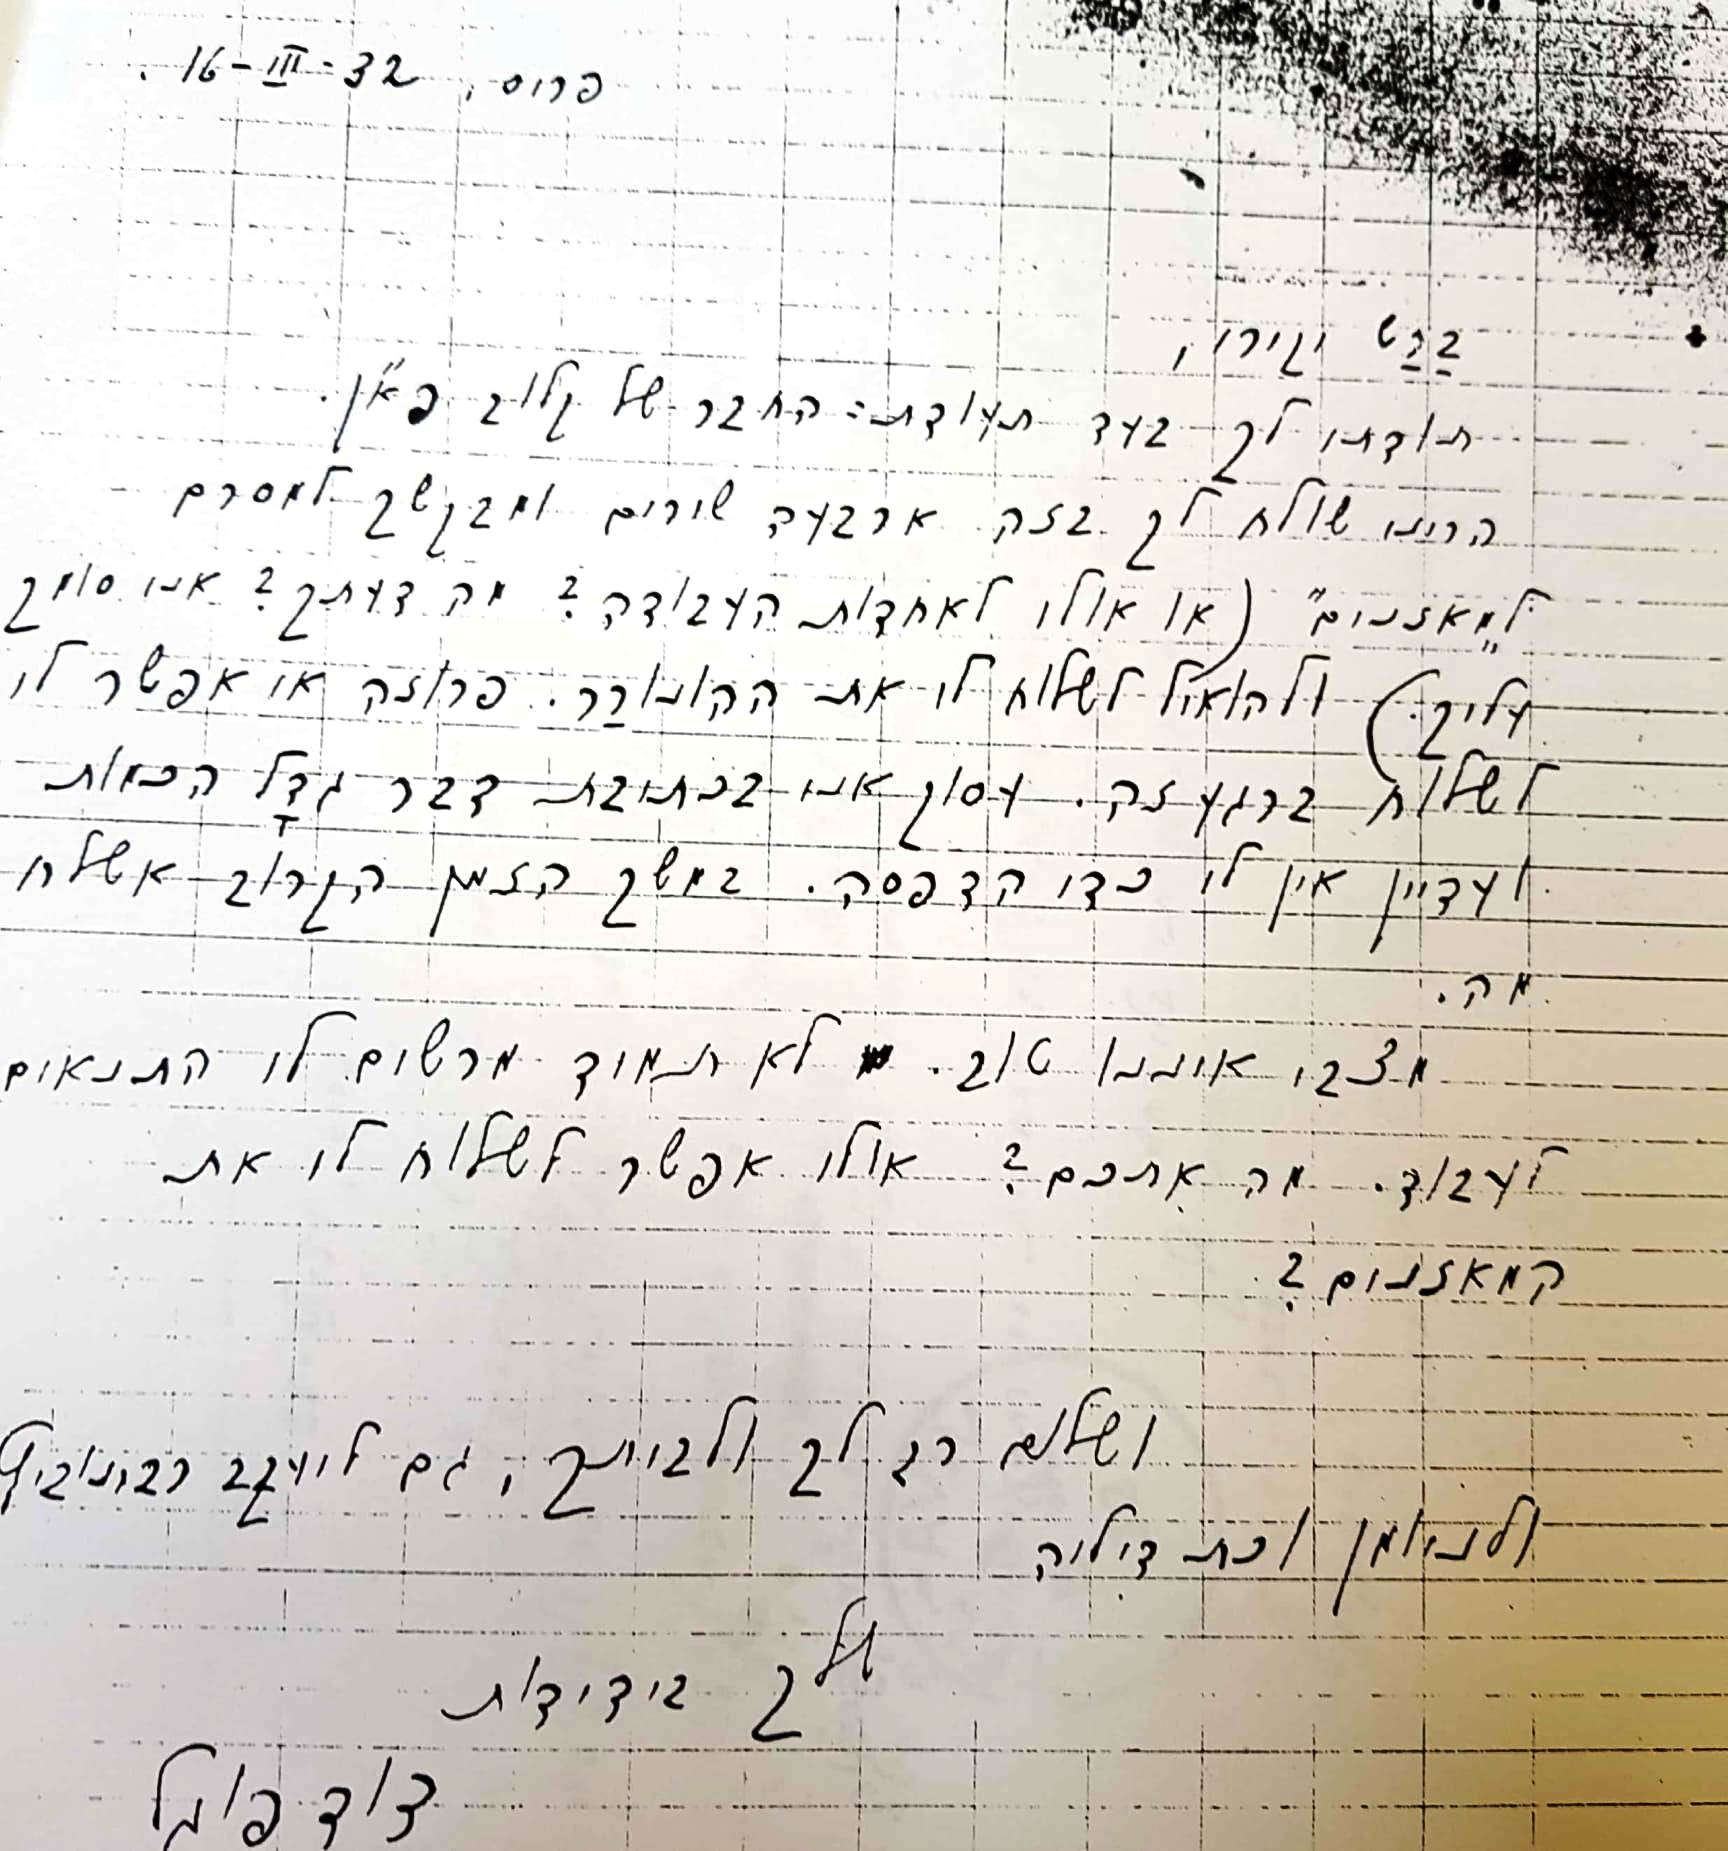 פריס, 16-III-32.
ברש יקירי,
תודתי לך בעד תעודת-החבר של קלוב פא"ן.
הריני שולח לך בזה ארבעה שירים ומבקשך למסרם
ל"מאזנים" (או אולי לאחדות העבודה? מה דעתך? אני סומך
עליך.) ולהואיל לשלוח לי את ההונורר. פרוזה אי אפשר לי
לשלוח ברגע זה. עסוק אני בכתיבת דבר גדל הכמות
ועדיין אין לי כדי הדפסה. במשך הזמן הקרוב אשלח
מה.
מצבי איננו טוב. לא תמיד מרשים לי התנאים
לעבוד. מה אתכם? אולי אפשר לשלוח לי את
המאזנים?
ושלום רב לך ולביתך, גם ליעקב רבינוביץ
ולניומן וכת דיליה
ולך בידידות
דוד פוגל